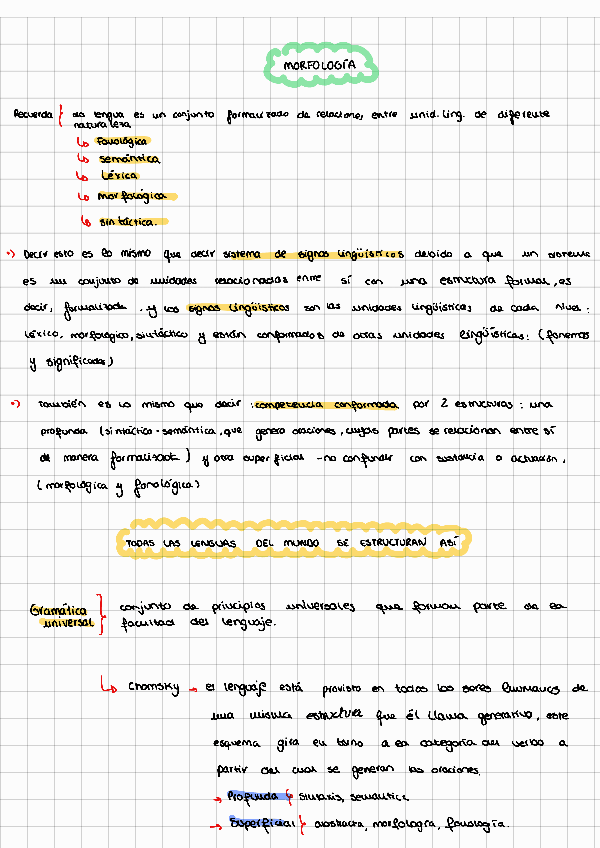 MORFOLOGÍA
Recuerda } La lengua es un conjunto formalizado de relaciones entre unid. ling. de diferente
naturaleza
↳ Fonológica
↳ semántica
↳ Léxica
↳ morfológica
↳ sintáctica.
Decir esto es lo mismo que decir sistema de signos lingüísticos debido a que un sistema
es un conjunto de unidades relacionadas entre sí con una estructura formal, es
decir, formalizada. y los signos lingüísticos son las unidades lingüísticas de cada nivel:
léxico, morfológico, sintáctico y están conformados de otras unidades lingüísticas: (fonemas
y significados)
También es lo mismo que decir: competencia conformada por 2 estructuras: una
profunda (sintáctica-semántica, que genera oraciones, cuyas partes se relacionan entre sí
de manera formalizada) y otra superficial -no confundir con sustancia o actuación.
(morfológica y fonológica)
TODAS LAS LENGUAS DEL MUNDO SE ESTRUCTURAN ASÍ
Gramática universal } conjunto de principios universales que forman parte de la
facultad del lenguaje.
↳ Chomsky → el lenguaje está provisto en todos los seres humanos de
una misma estructura que él llama generativo, este
esquema gira en torno a la categoría del verbo a
partir del cual se generan las oraciones.
→ Profunda { sintaxis, semántica
→ Superficial } abstracta, morfología, fonología.